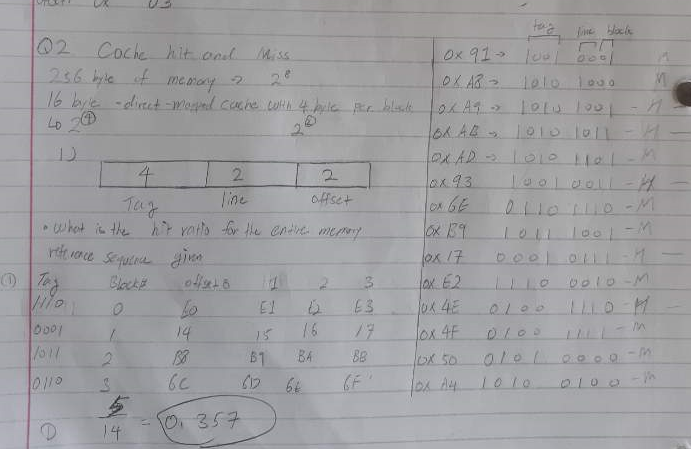 Q2 Cache hit and Miss
256 byte of memory → 2⁸
16 byte - direct-mapped cache with 4 byte per block
↳ 2④ 2②
1)
4 2 2
Tag line offset
• What is the hit ratio for the entire memory
reference sequence given
① Tag Block# offset 0 1 2 3
1110 0 E0 E1 E2 E3
0001 1 14 15 16 17
1011 2 B8 B9 BA BB
0110 3 6C 6D 6E 6F
① 5/14 = 0.357
tag line block
0x91 → 1001 0001 M
0x A8 → 1010 1000 M
0x A9 → 1010 1001 - H -
0x AB → 1010 1011 - H -
0x AD → 1010 1101 - M
0x 93 1001 0011 - H -
0x 6E 0110 1110 - M
0x B9 1011 1001 - M
0x 17 0001 0111 - H -
0x E2 1110 0010 - M
0x 4E 0100 1110 - H -
0x 4F 0100 1111 - M
0x 50 0101 0000 - M
0x A4 1010 0100 - M